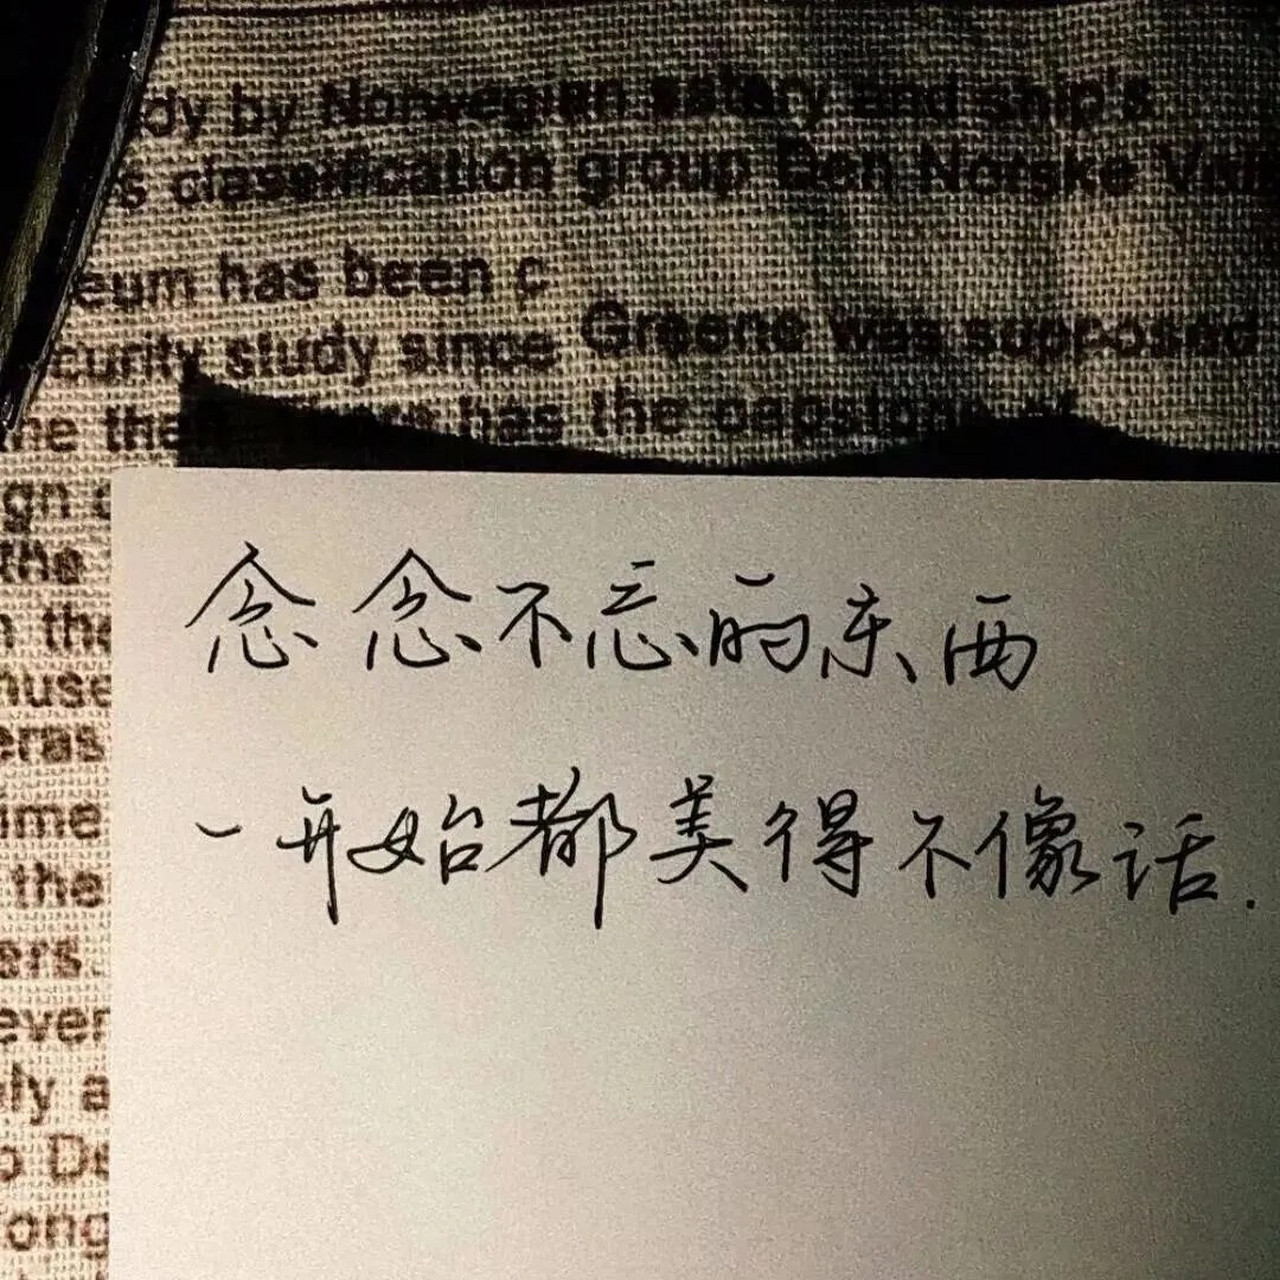 dy by Norwegian and ship's
s classification group Den Norske
eum has been c
curity study since Greene was supposed
he than has the
gn
the
n the
muse
eras
ime
the
ers.
ever
ly a
o De
ong
念念不忘的东西
一开始都美得不像话.